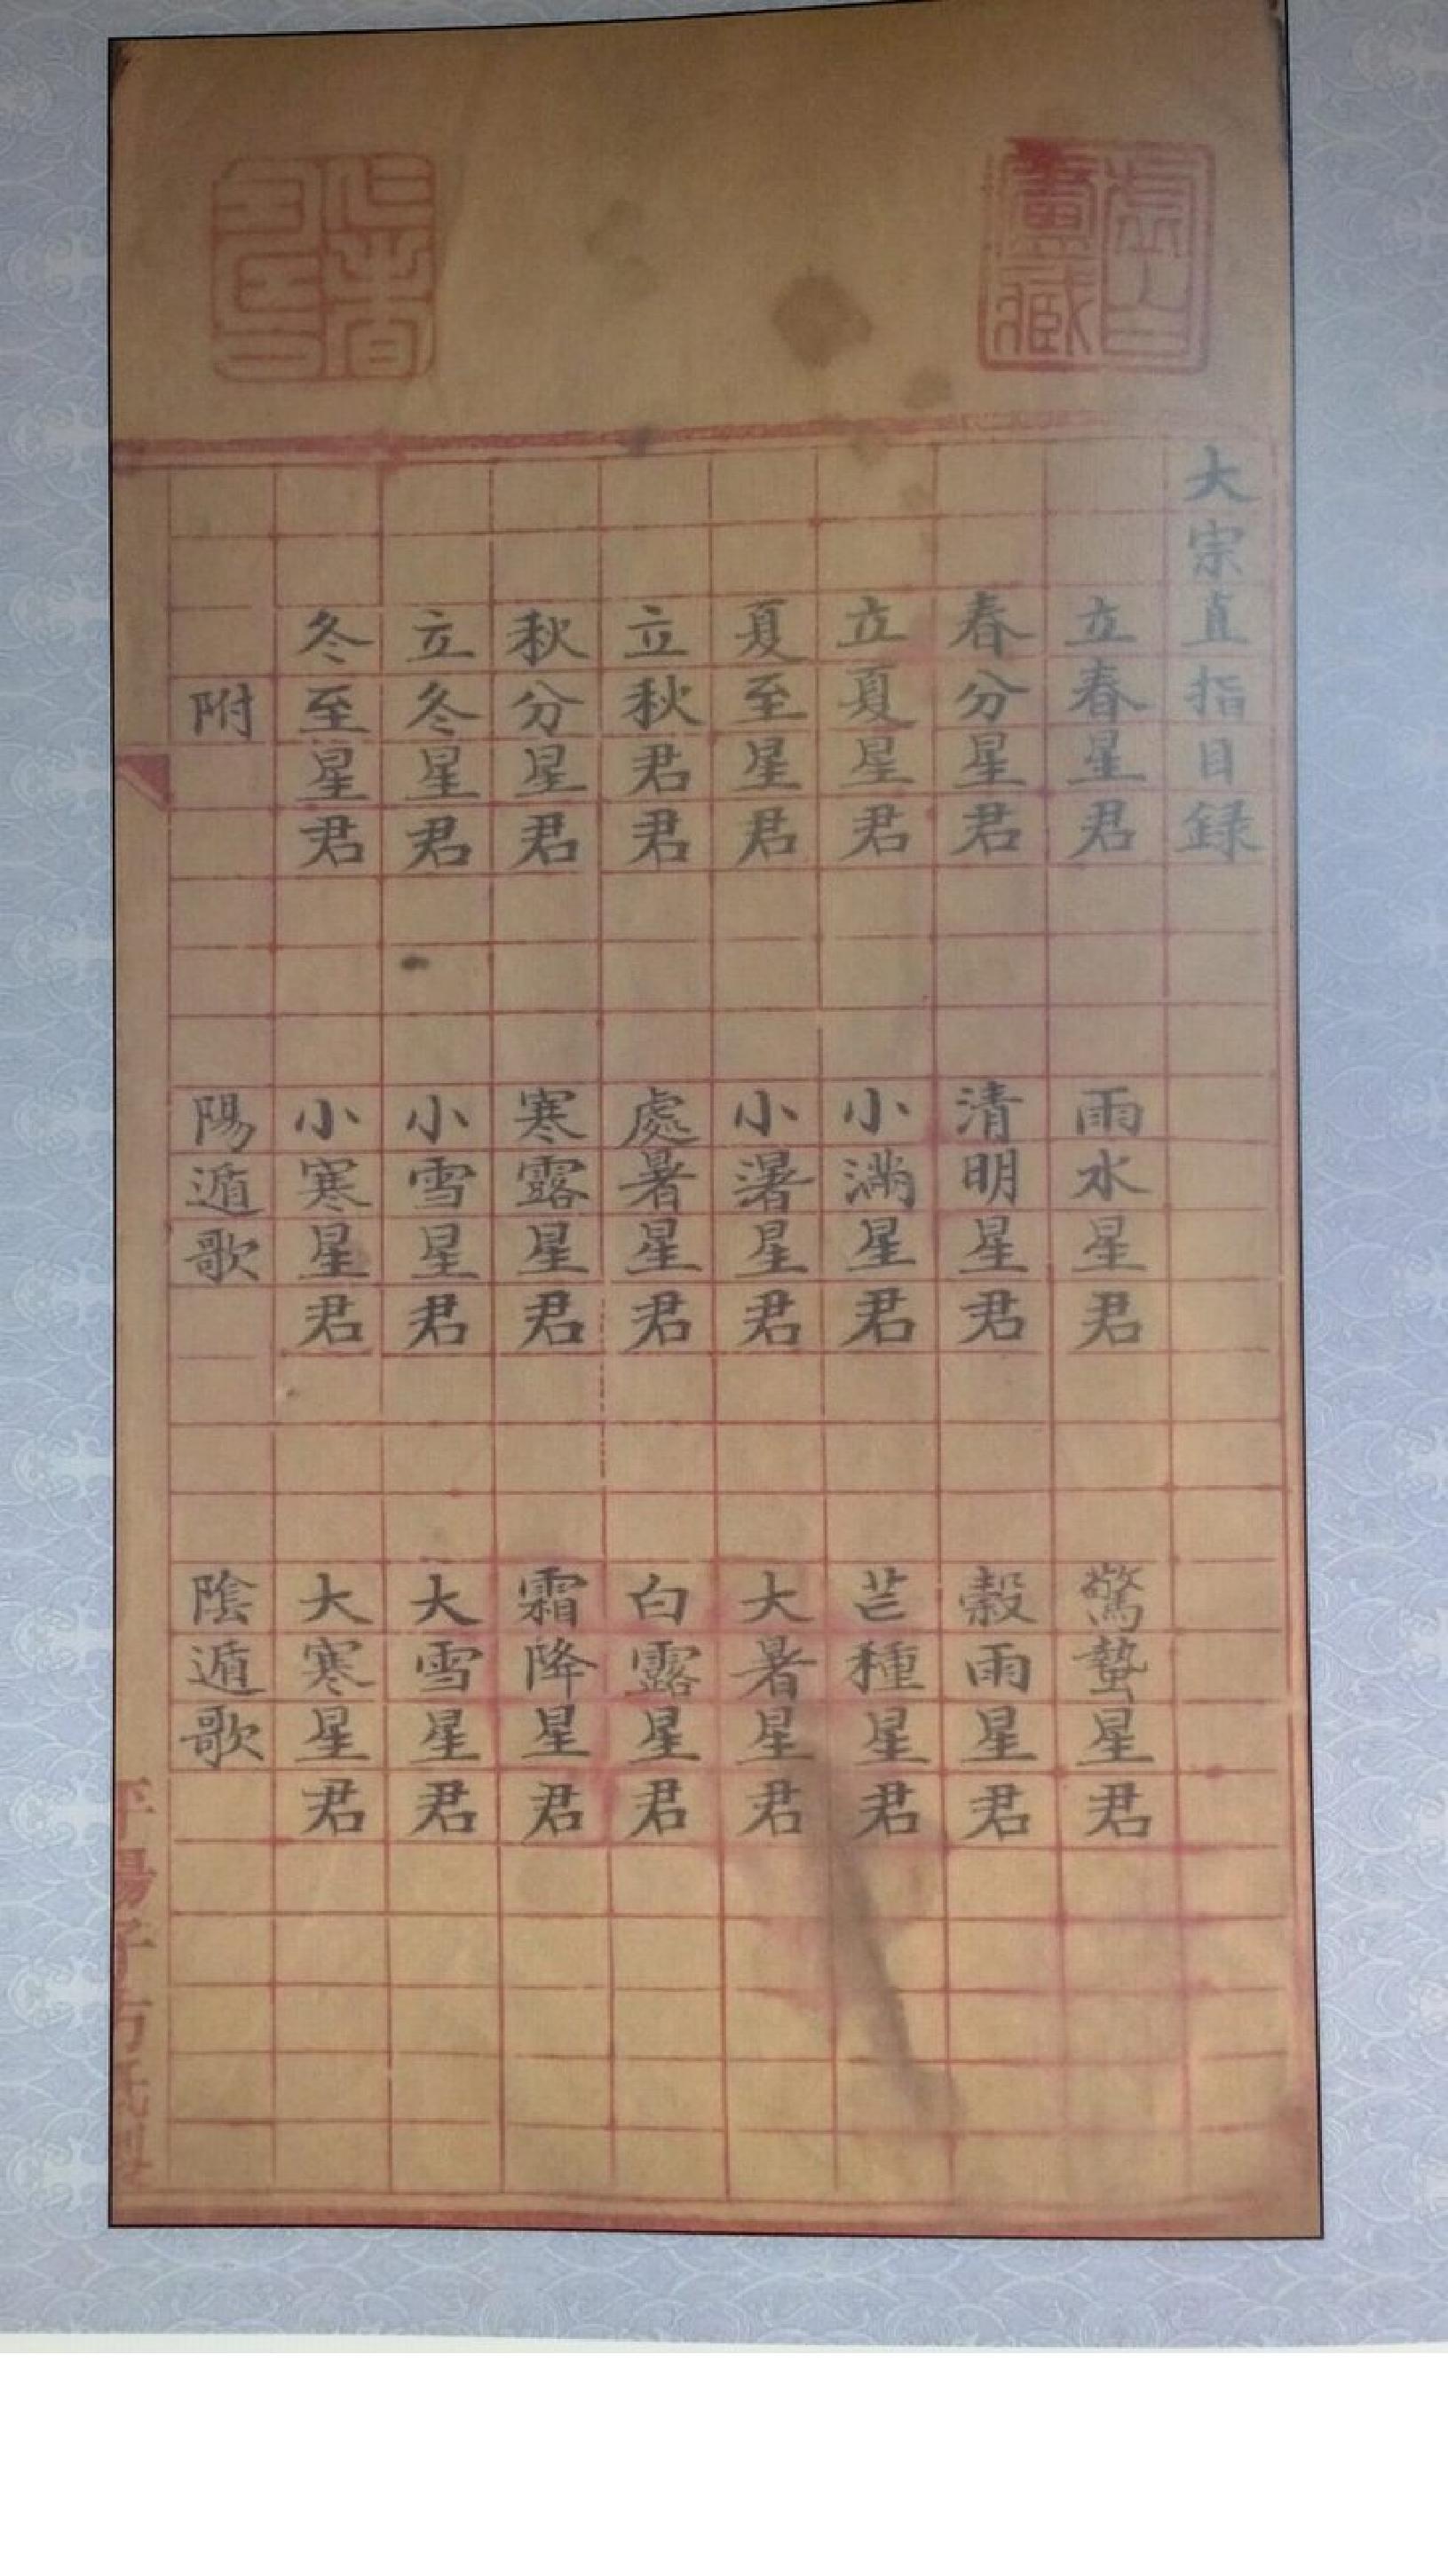 大宗直指目録
立春星君 雨水星君 驚蟄星君
春分星君 清明星君 穀雨星君
立夏星君 小滿星君 芒種星君
夏至星君 小暑星君 大暑星君
立秋君君 處暑星君 白露星君
秋分星君 寒露星君 霜降星君
立冬星君 小雪星君 大雪星君
冬至星君 小寒星君 大寒星君
附 陽遁歌 陰遁歌